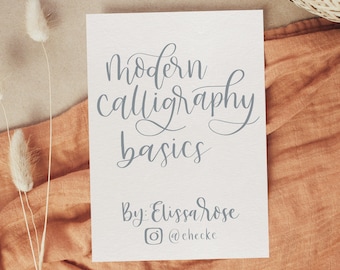 modern
calligraphy
basics
By: Elissarose
@checkc